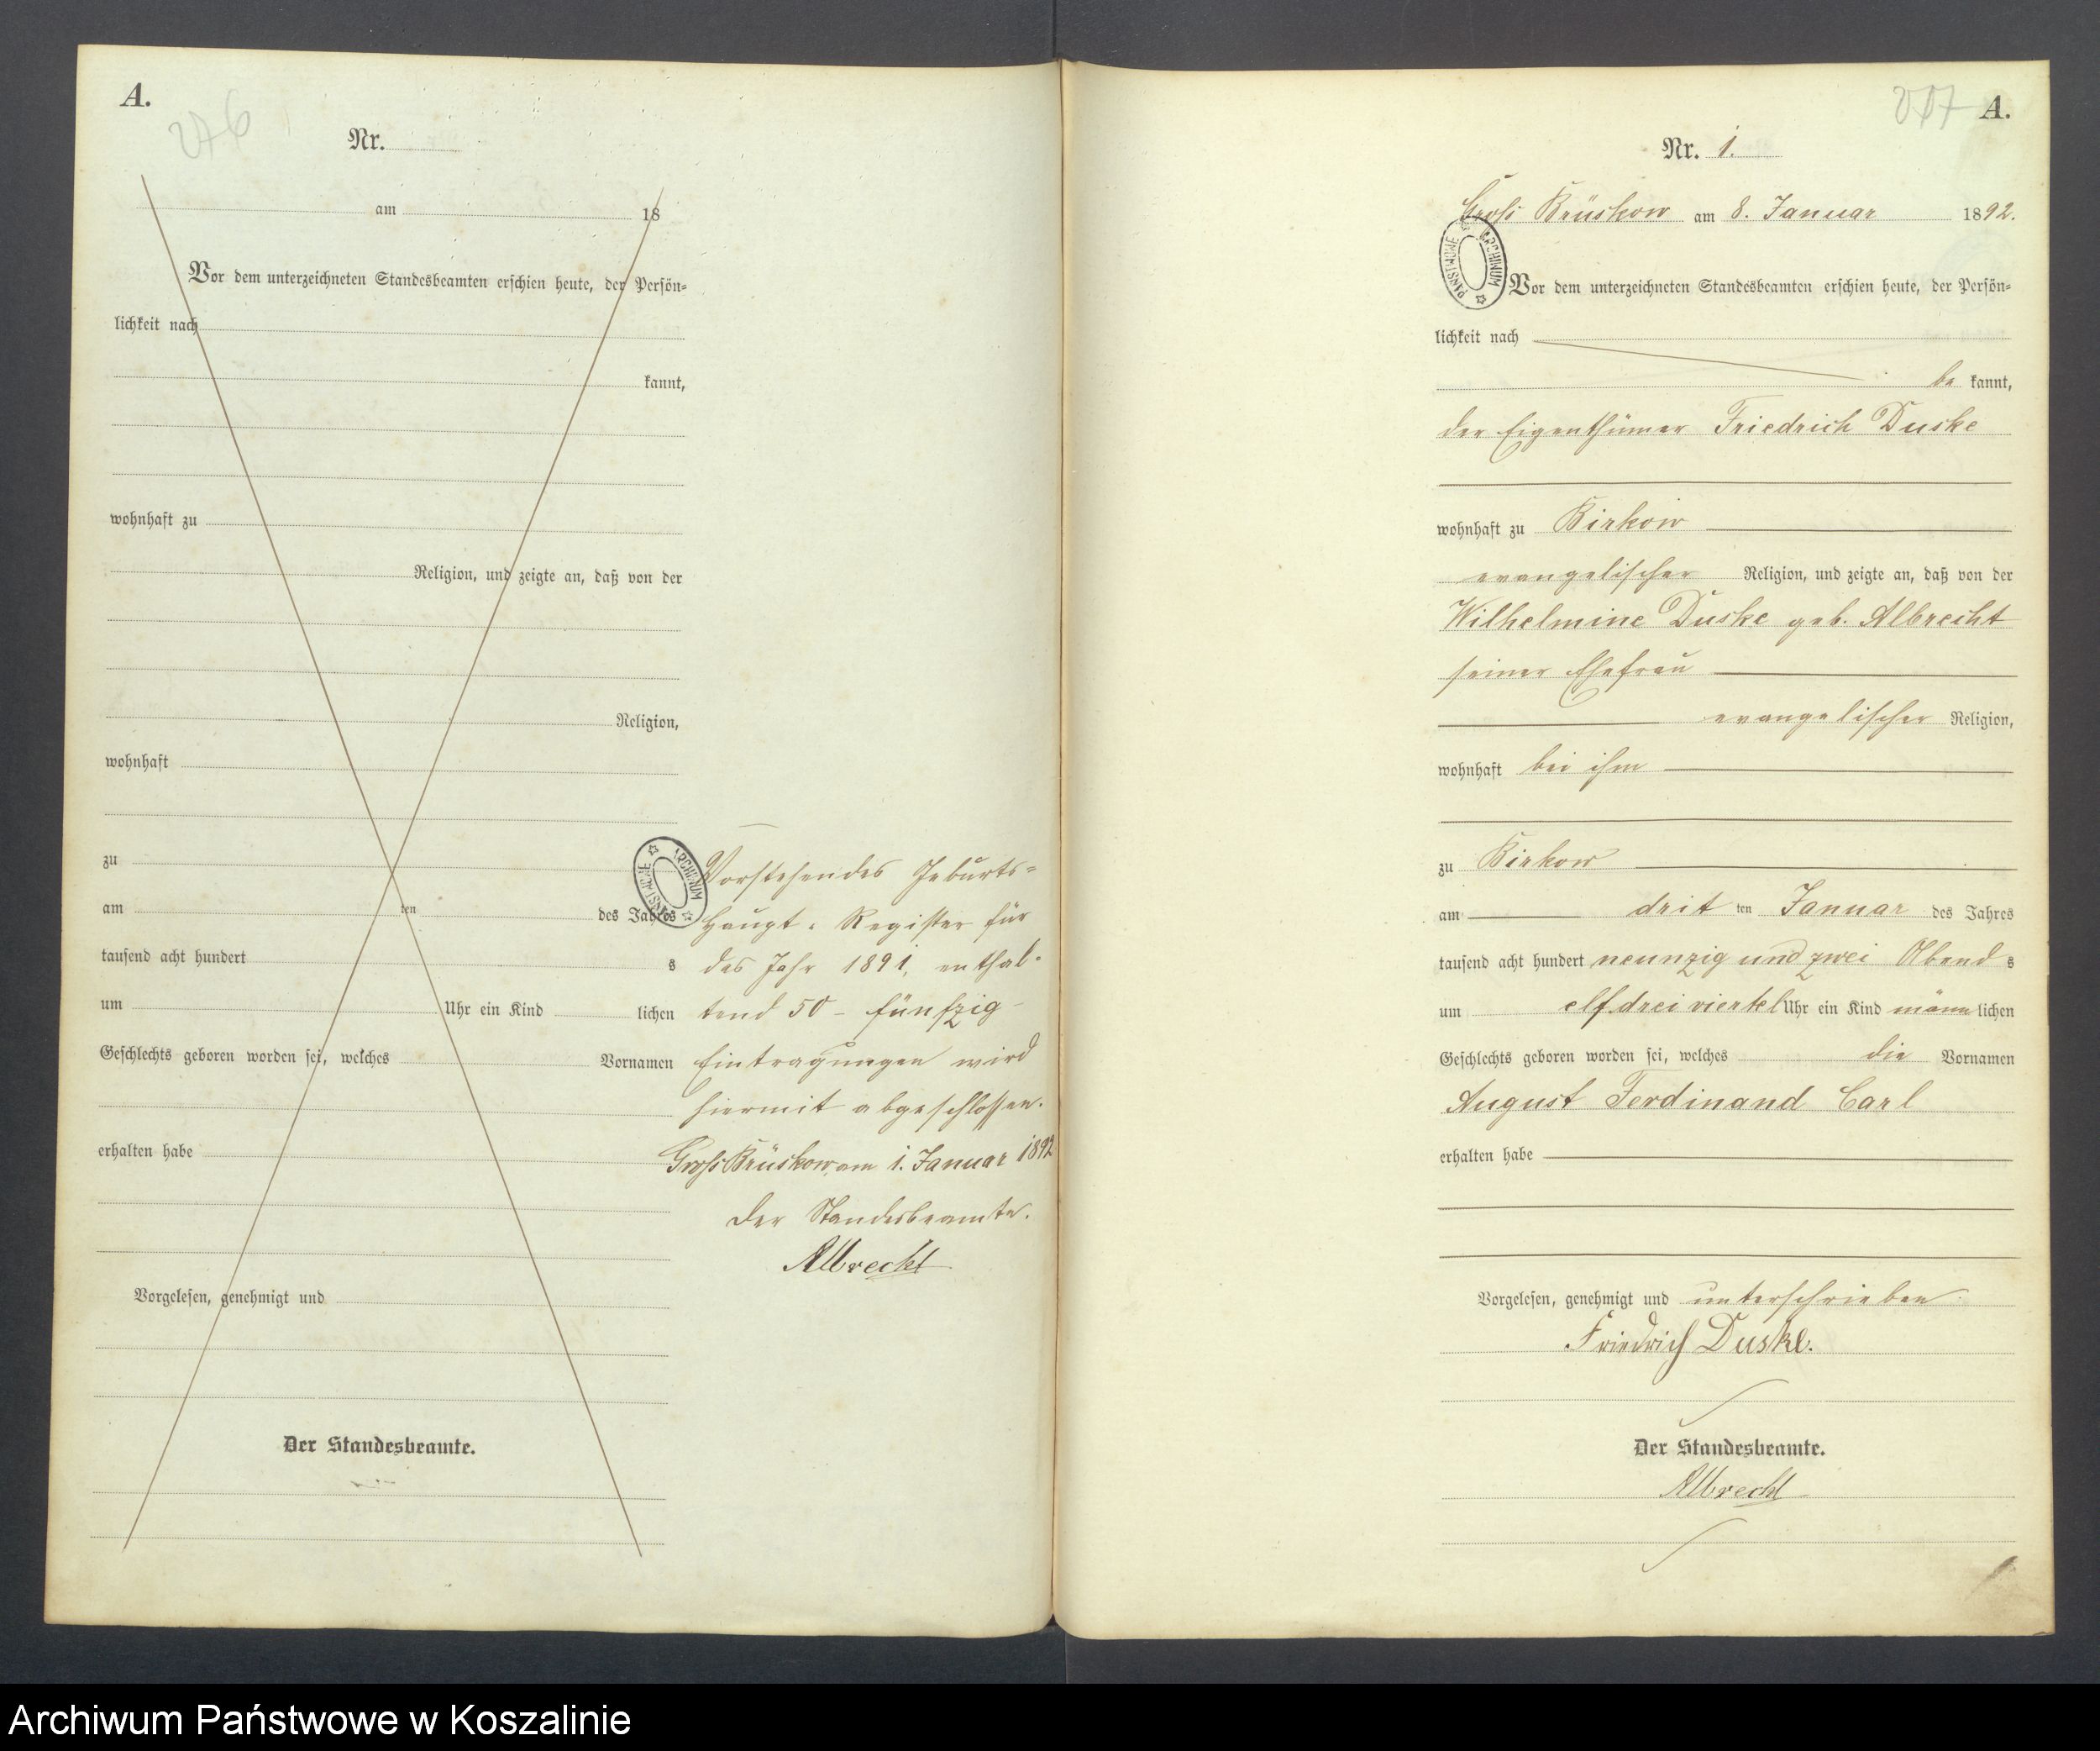 A.
276
Nr.
am 18
Vor dem unterzeichneten Standesbeamten erschien heute, der Persön-
lichkeit nach
kannt,
wohnhaft zu
Religion, und zeigte an, daß von der
Religion,
wohnhaft
zu
am ten des Jahres
tausend acht hundert s
um Uhr ein Kind lichen
Geschlechts geboren worden sei, welches Vornamen
erhalten habe
Vorgelesen, genehmigt und
Der Standesbeamte.
ARCHIWUM PAŃSTWOWE
Vorstehendes Geburts-
Haupt-Register für
das Jahr 1891, enthal-
tend 50 - fünfzig -
Eintragungen wird
hiermit abgeschlossen.
Groß Brüskow am 1. Januar 1892
Der Standesbeamte.
Albrecht
A.
Nr. 1.
Groß Brüskow am 8. Januar 1892.
ARCHIWUM PAŃSTWOWE
Vor dem unterzeichneten Standesbeamten erschien heute, der Persön-
lichkeit nach
be kannt,
der Eigenthümer Friedrich Duske
wohnhaft zu Birkow
evangelischer Religion, und zeigte an, daß von der
Wilhelmine Duske geb. Albrecht
seiner Ehefrau
evangelischer Religion,
wohnhaft bei ihm
zu Birkow
am drit ten Januar des Jahres
tausend acht hundert neunzig und zwei Abend s
um elf drei viertel Uhr ein Kind männ lichen
Geschlechts geboren worden sei, welches die Vornamen
August Ferdinand Carl
erhalten habe
Vorgelesen, genehmigt und unterschrieben
Friedrich Duske.
Der Standesbeamte.
Albrecht
Archiwum Państwowe w Koszalinie